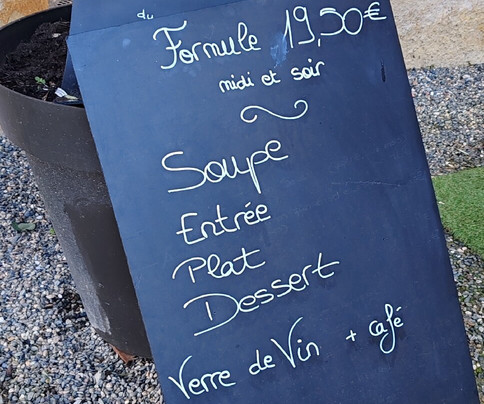 du
Formule 19,50€
midi et soir
Soupe
Entrée
Plat
Dessert
Verre de Vin + café